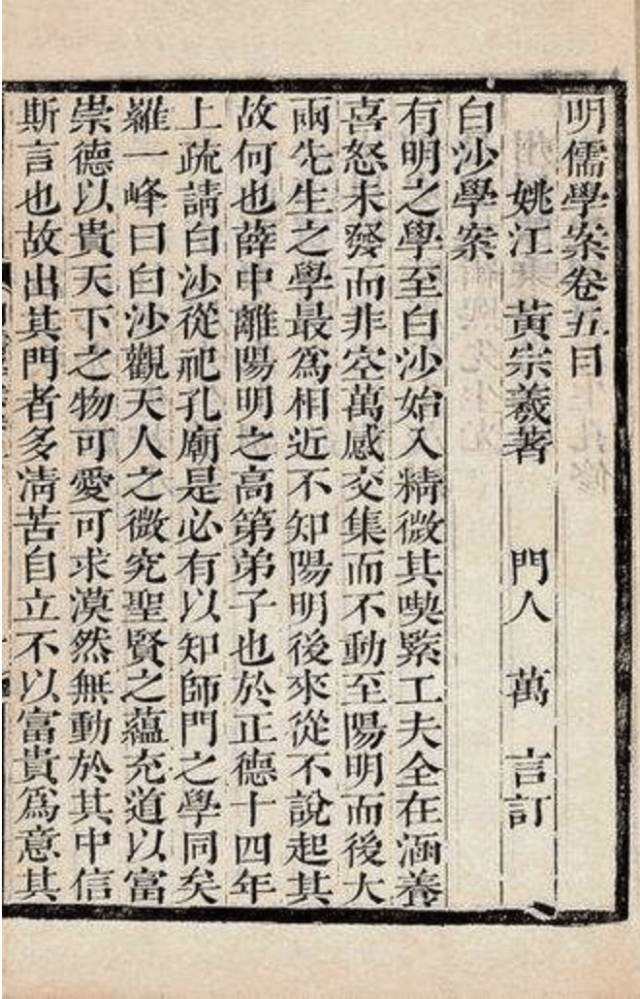 明儒學案卷五目
姚江 黃宗羲著 門人 萬 言訂
白沙學案
有明之學至白沙始入精微其喫緊工夫全在涵養
喜怒未發而非空萬感交集而不動至陽明而後大
兩先生之學最爲相近不知陽明後來從不說起其
故何也薛中離陽明之高第弟子也於正德十四年
上疏請白沙從祀孔廟是必有以知師門之學同矣
羅一峰曰白沙觀天人之微究聖賢之蘊充道以富
崇德以貴天下之物可愛可求漠然無動於其中信
斯言也故出其門者多清苦自立不以富貴爲意其